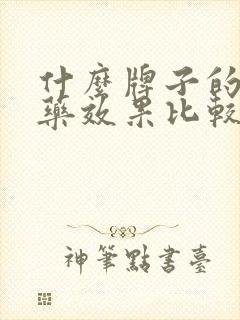 什麼牌子的
藥效果比較
神筆點書臺